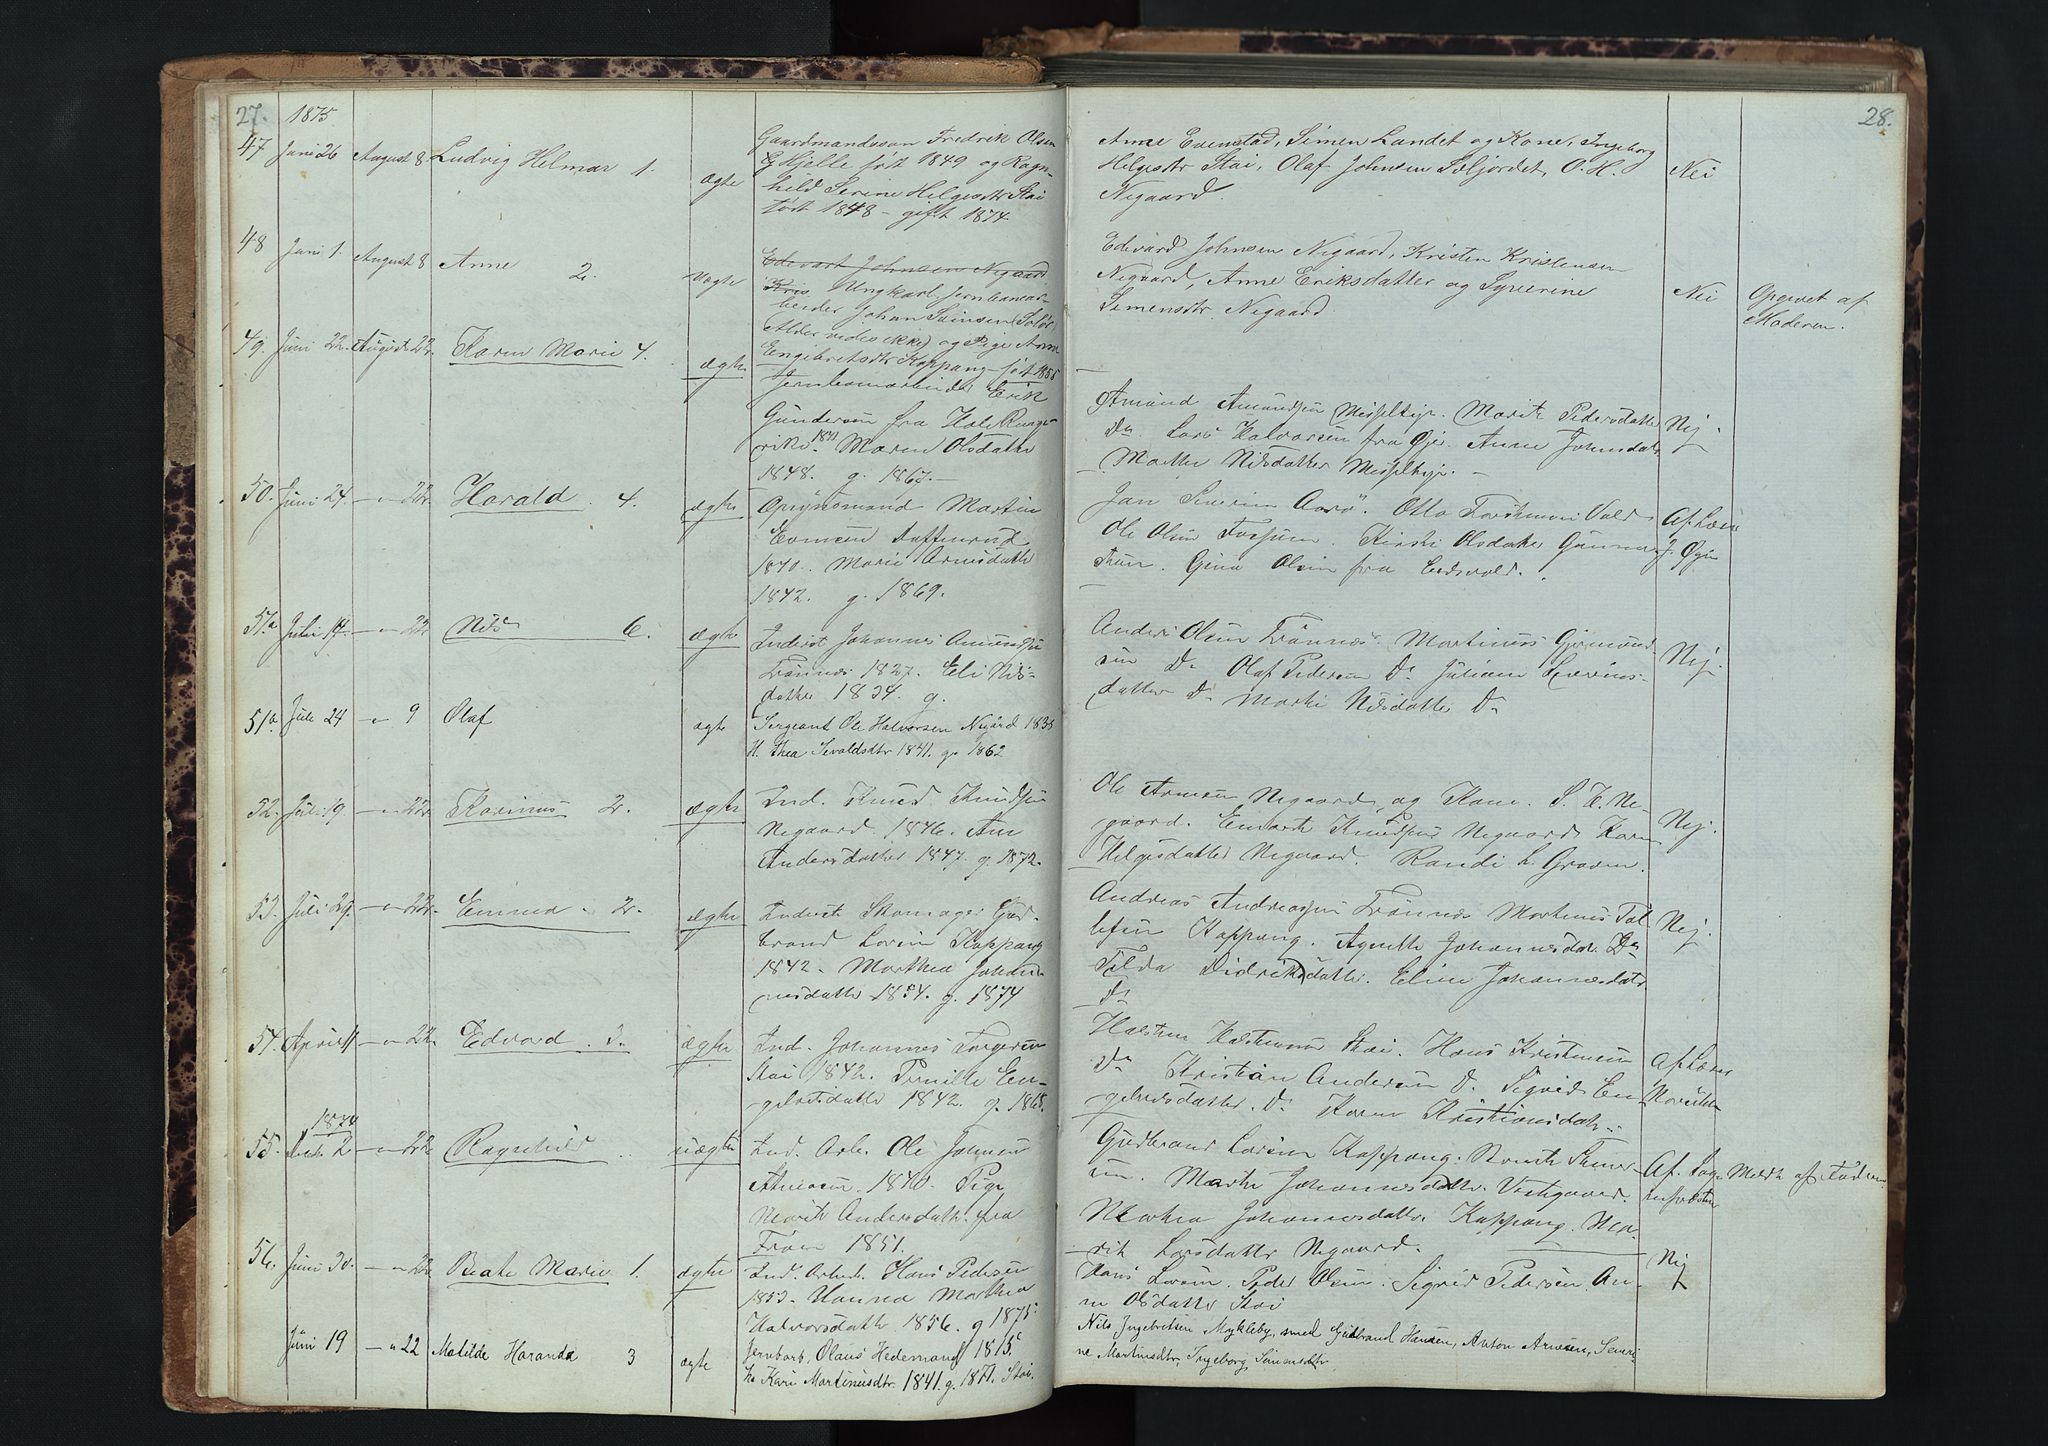 27. 1875
47 Juni 26 August 8 Ludvig Helmar 1. ægte
Gaardmandssøn Fredrik Olsen
Hjelle født 1849 og Ragn-
hild Serene Helgesdtr Stai
født 1848 - gift 1874
48 Juni 1. August 8 Anne 2. uægte
Edevart Johnsen Negaard
Kris Ungkarl, Jernbanear-
beider Johan Svinsen (Solør
Alder vides ikke) og Pige Anne
Engebretsdtr Koppang - født 1855
49. Juni 22. August 22. Karen Marie 4. ægte
Jernbanearbeider Erik
Gundersen fra Hole Ringe-
rike. 1841 Maren Olsdatter
1848. g. 1867. -
50. Juni 24. - " - 22. Harald. 4. ægte
Opsynsmand Martin
Evensen
1840. Marie Arnesdatter
1842. g. 1869.
51a Juli 14. - " - 22 Nils 6. ægte
Inderst Johannes Amundsen
Trønnes 1827. Eli Nils-
datter 1834. g.
51b Juli 24 - " - 9 Olaf ægte
Sergeant Ole Halvorsen Negård 1835
H. Thea Sevaldsdtr 1841. g. 1862
52. Juli 19. - " - 22. Karinus 2. ægte
Ind. Knud Knudsen
Negaard. 1846. Ane
Andersdatter 1847. g. 1872.
53. Juli 29. - " - 22. Emma - 2. ægte
Inderst Skomager Gud-
brand Larsen Koppang
1842. Marthea Johan-
nesdatter 1854. g. 1874
54. April 11 - " - 22. Edvard. 3. ægte
Ind. Johannes Torgersen
Stai 1842. Pernille En-
gebretsdatter 1842. g. 1868.
1874
55. 2 - " - 22. Ragnhild uægte
Ind. Arb. Ole Johnsen
1840. Pige
Marit Andersdatter fra
1851.
56. Juni 30. - " - 22. Beate Marie 1. ægte
Ind. Arbeid. Hans Pedersen
1853. Hanna Marthea
Halvorsdatter 1856. g 1875.
Juni 19 - " 22 Matilde Haranda 3 ægte
Jernbarb. Olaus Hedemand 1845.
Ho Kari Martinusdtr. 1841. g. 1871. Stai.
28.
Anne Evenstad, Simen Landet og Kone, Ingeborg
Helgesdtr Stai, Olaf Johnsen Søljordet, O. H.
Negaard.
Nei
Edevard Johnsen Negaard, Kristen Kristensen
Negaard, Anne Eriksdatter og Syverine
Simensdtr. Negaard.
Nei
Opgivet af
Moderen.
Amund Amundsen Messeltije. Marit Pedersdatter
Do. Lars Halvorsen fra Øjer. Anne Johnsdatr
Marthe Nilsdatter Messeltije. -
Nej.
Jan Severin Aarø. Otto Torstensen Vold
Ole Olsen Fossum. Kirsti Olsdatter Gunner-
stuen. Gina Olsen fra Eidsvold.
Af Læge
Anders Olsen Trønnes. Martinus Gjermund-
sen Do Olaf Pedersen Do Juliane Severins-
datter Do Marthe Nilsdatter Do
Nej.
Ole Arnesen Negaard og Kone. S. H. Ne-
gaard. Edvart Knudsen Negaard. Karen
Helgesdatter Negaard. Randi L. Graven.
Nej.
Andreas Andreassen Trønnes Martinus Tol-
lefsen Koppang. Agnethe Johannesdatr Do
Tilda Didriksdatter. Eline Johannesdatr
Do
Nej.
Halsten Halstensen Stai. Hans Kristensen
Do Kristian Andersen Do. Sigrid En-
gebretsdatter. Do Karen Kristiansdatr.
Af Lærer
Gudbrand Larsen Koppang.
sen. Marthe Johannesdatter Vestgaard.
Marthea Johannesdatter Koppang. Ma-
rit Larsdatter Negaard.
Af Sog-
nepresten
Meldt af Faderen
Hans Larsen. Peder Olsen. Sigrid Pedersen. An-
ne Olsdatter Stai
Nej
Nils Ingebretsen Mykleby, smed Gudbrand Hansen, Anton Arnesen, Severi-
ne Martinsdtr, Ingeborg Simensdtr